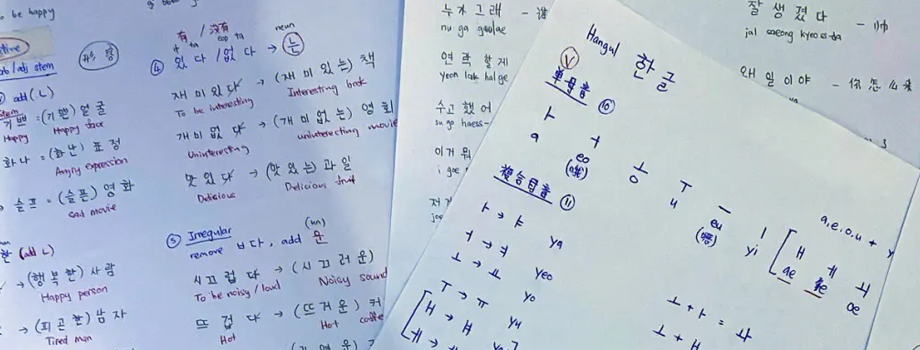 to be happy
verb/adj stem
add (ㄴ)
기쁘 = (기쁜) 얼굴
Happy Happy face
화나 = (화난) 표정
Angry expression
슬프 = (슬픈) 영화
sad movie
한 (add ㄴ)
→ (행복한) 사람
Happy person
→ (피곤한) 남자
Tired man
有 / 没有
it ta eop ta neun
④ 있다 / 없다 → 는
재미있다 → (재미있는) 책
To be interesting Interesting book
재미없다 → (재미없는) 영화
Uninteresting uninteresting movie
맛있다 → (맛있는) 과일
Delicious Delicious fruit
(un)
⑤ Irregular
remove ㅂ다, add 운
시끄럽다 → (시끄러운)
To be noisy / loud Noisy sound
뜨겁다 → (뜨거운) 커
Hot Hot coffee
누가 그래 - 谁
nu ga geulae
연락할게
yeon lak halge
수고했어
su go haess-
이거 뭐
i geo
잘 생겼다 - 帅
jal saeng kyeoss-da
왜 일이야 - 你怎么来
Hangul 한글
V
单母音 ⑩
ㅏ ㅓ ㅗ ㅜ ㅡ ㅣ
a eo o u eu yi
a,e,o,u + y
ㅐ ㅔ ㅚ
ae oe
複合母音 ⑪
ㅏ → ㅑ ya
ㅓ → ㅕ yeo
ㅗ → ㅛ yo
ㅜ → ㅠ yu
ㅐ → ㅒ ya
ㅔ →
ㅗ + ㅏ = ㅘ
ㅗ + ㅐ